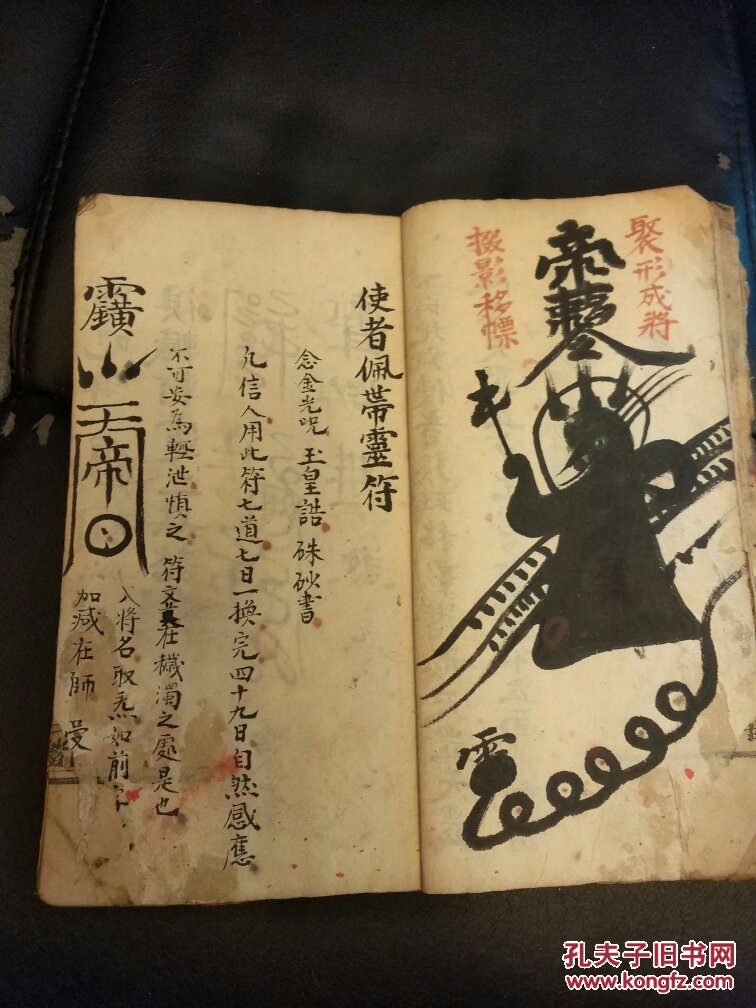 聚形成將
掇影移幖
帝
雷
使者佩帶靈符
念金光咒 玉皇誥 硃砂書
凡信人用此符七道七日一換完四十九日自然感應
不可妄為輕泄慎之 符文 在穢濁之處是也
天帝
入將名取炁如前
加減在師
孔夫子旧书网
www.kongfz.com